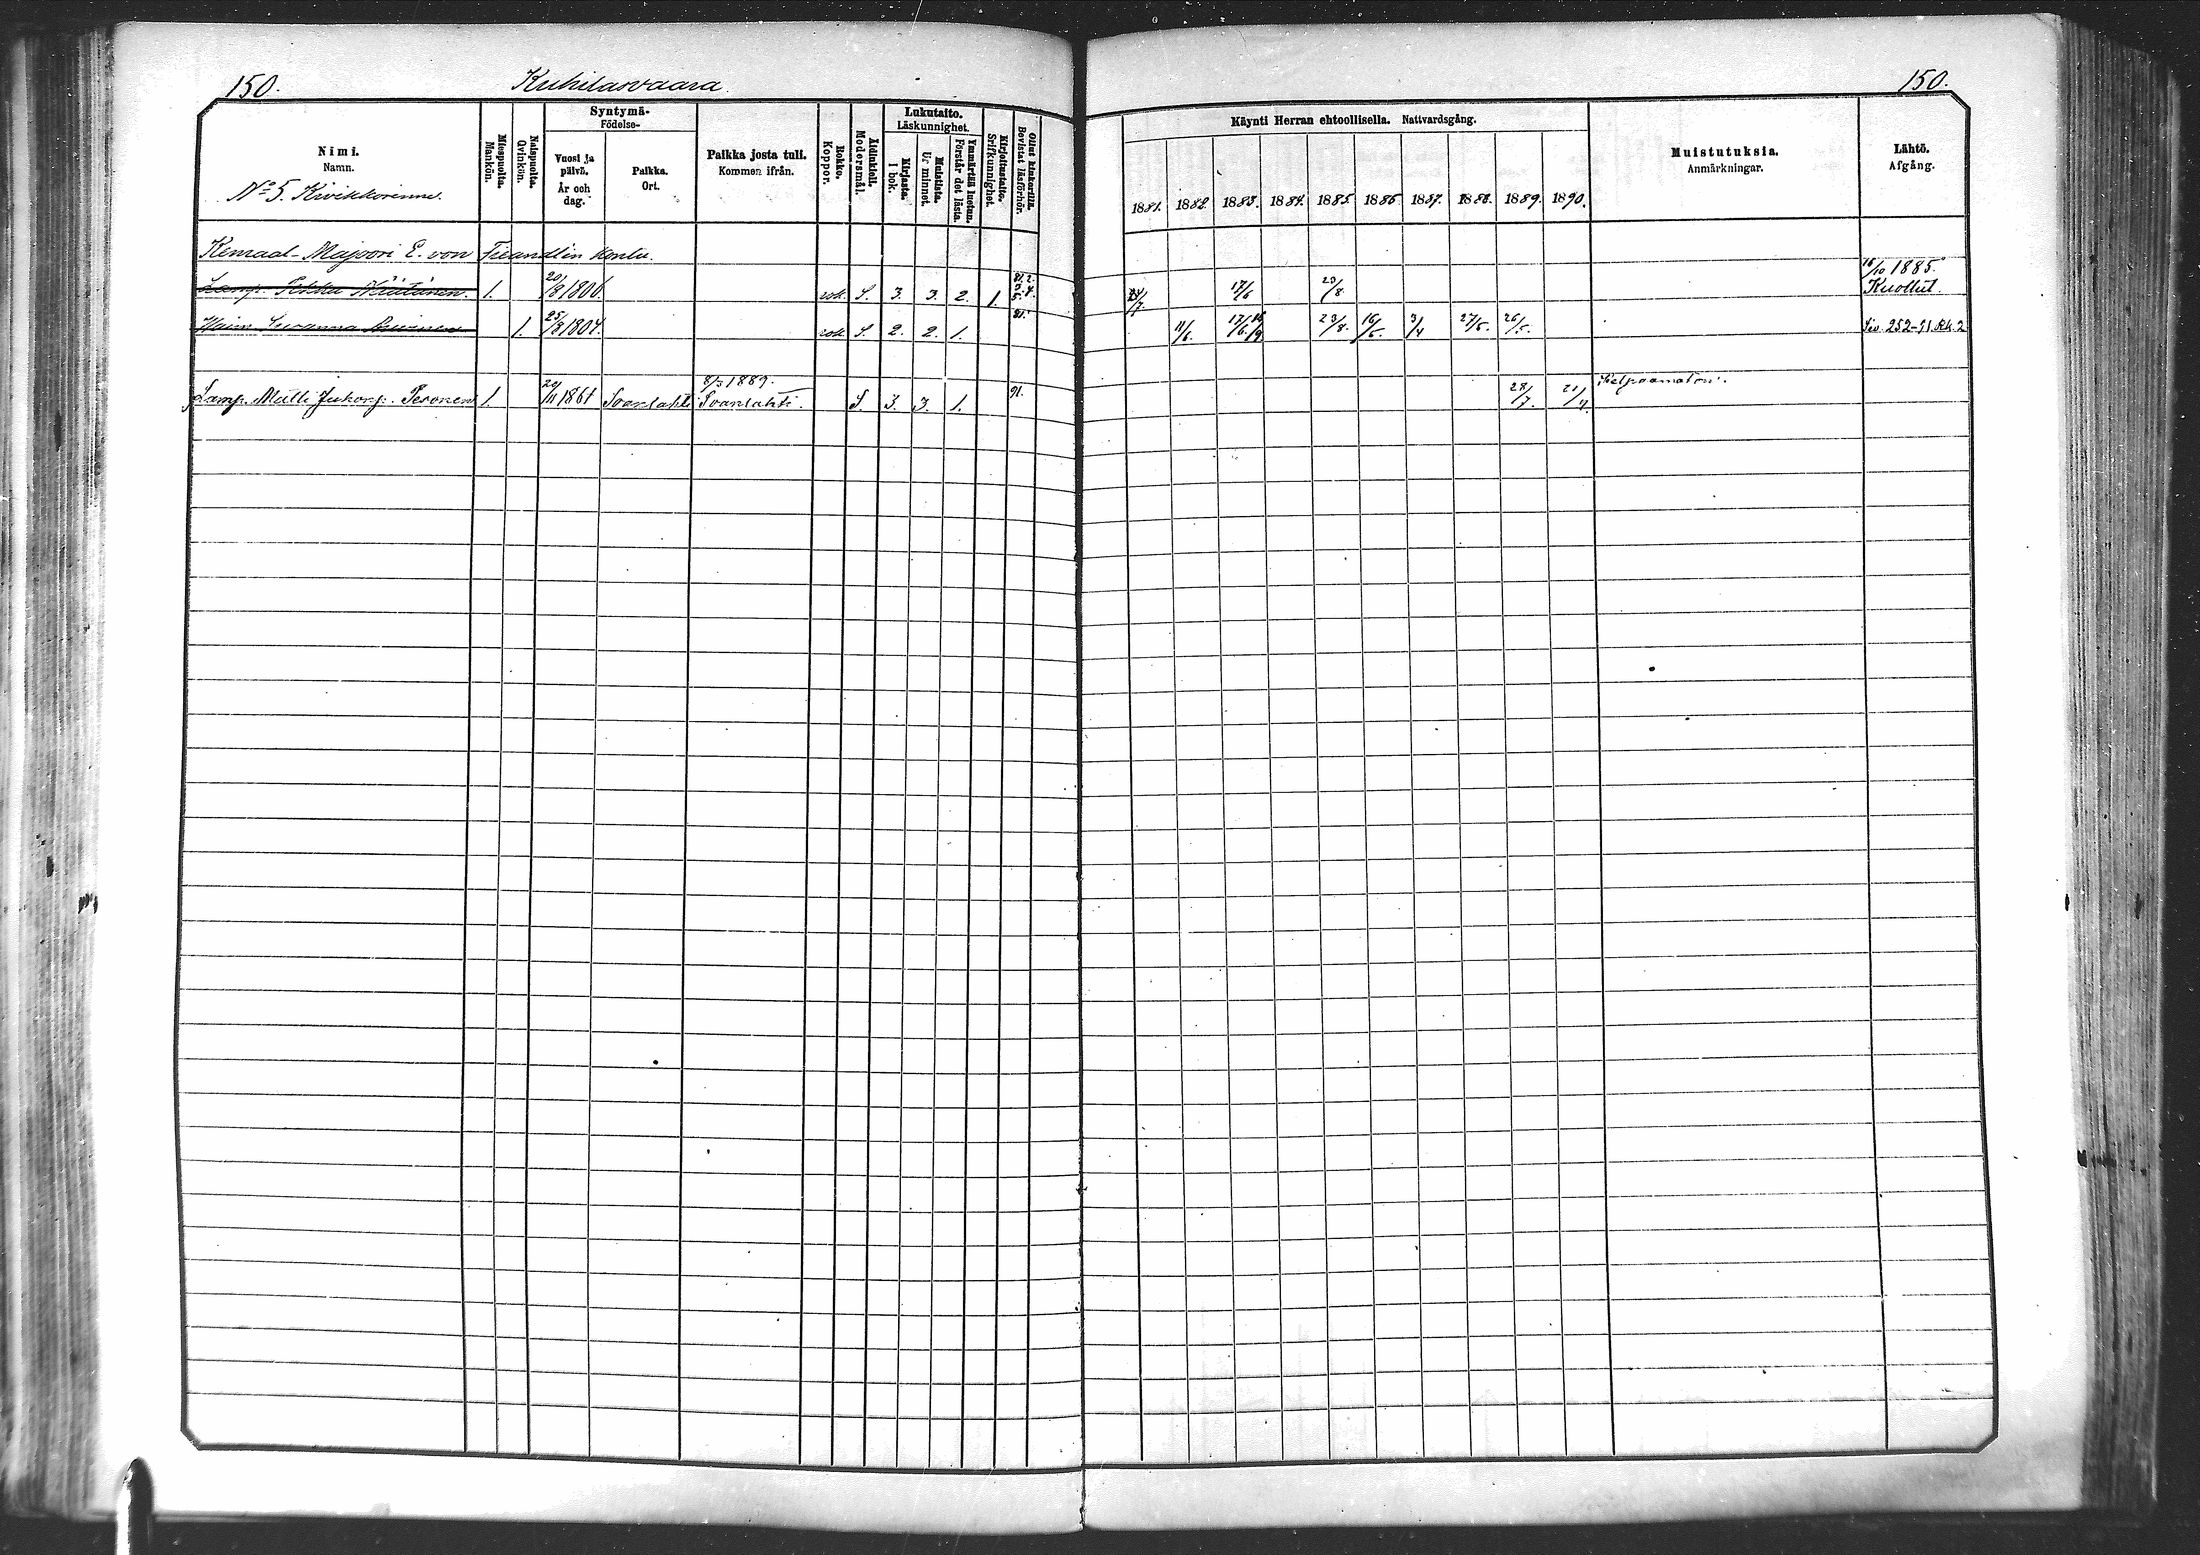 150.
Kuhilasvaara
150.
Nimi.
Namn.
No 5. Kivikkorinne.
Miespuolta.
Mankön.
Naispuolta.
Qvinkön.
Syntymä-
Födelse-
Vuosi ja päivä.
År och dag.
Paikka.
Ort.
Paikka josta tuli.
Kommen ifrån.
Rokko.
Koppor.
Äidinkieli.
Modersmål.
Lukutaito.
Läskunnighet.
Kirjasta.
I bok.
Muistista.
Ur minnet.
Ymmärtää luetun.
Förstår det lästa.
Kirjoitustaito.
Srifkunnighet.
Ollut kinkerillä.
Bevistat läsförhör.
Käynti Herran ehtoollisella. Nattvardsgång.
1881. 1882. 1883. 1884. 1885. 1886. 1887. 1888. 1889. 1890.
Muistutuksia.
Anmärkningar.
Lähtö.
Afgång.
Kenraal-Majoori E. von Fieandtin kontu.
Lamp. Pekka 1. 20/8 1806. rok. S. 3. 3. 2. 1. 17/6 23/8. 16/10 1885. Kuollut.
Susanna 1. 25/8 1804. rok. S. 2. 2. 1. 81. 11/6. 17/6 23/8. 16/5. 3/4 27/5. 26/5. Siv. 252-91. Rk. 2
Lamp. Matti Juhonp. Peronen 1. 20/11 1861 Soanlahti 8/3 1889. Soanlahti. S. 3. 3. 1. 91. 28/7. 21/4.